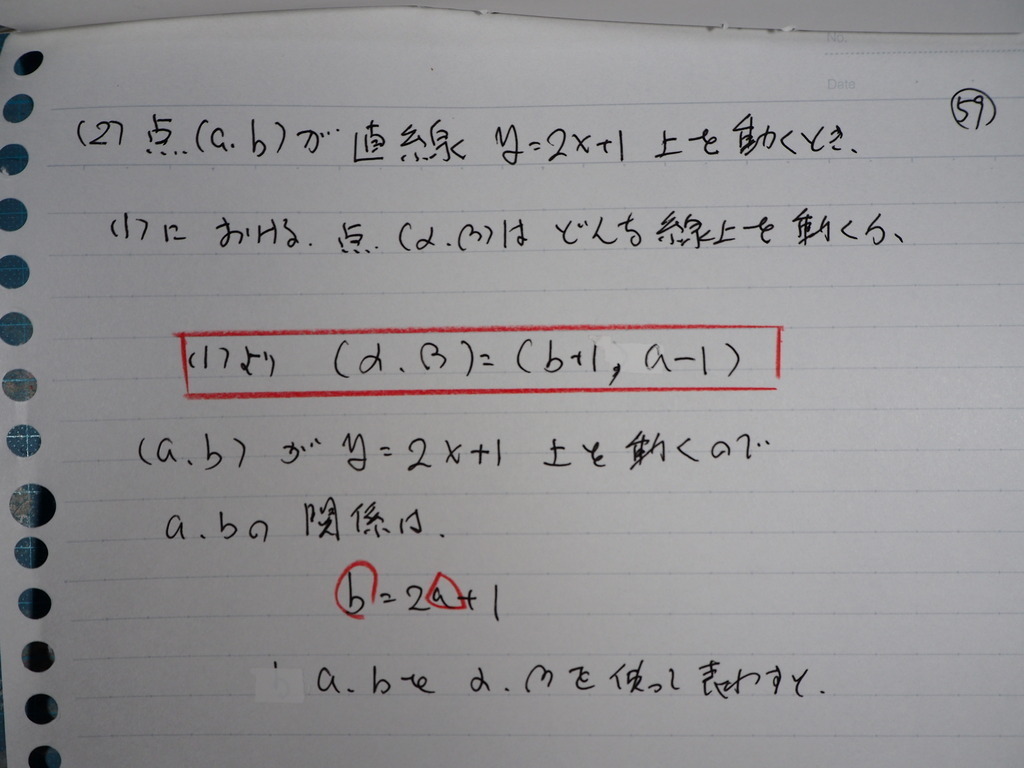 No.
Date
59
(2) 点(a.b)が 直線 y=2x+1 上を動くとき、
(1)における. 点.(α.β)は どんな線上を動くか、
(1)より (α.β)=(b+1, a-1)
(a.b)が y=2x+1 上を動くので
a.bの 関係は.
b=2a+1
a.bを α.βを使って表わすと.